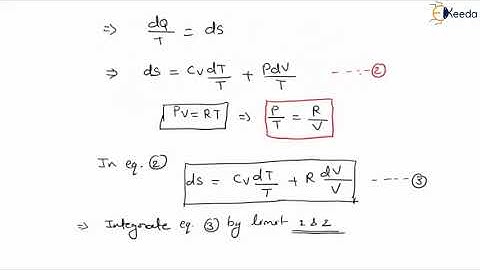 Ekeeda
=> dQ/T = ds
=> ds = Cv dT/T + PdV/T ---- ②
PV = RT => P/T = R/V
In eq. ② ds = Cv dT/T + R dV/V ---- ③
=> Integrate eq. ③ by limit 1 & 2